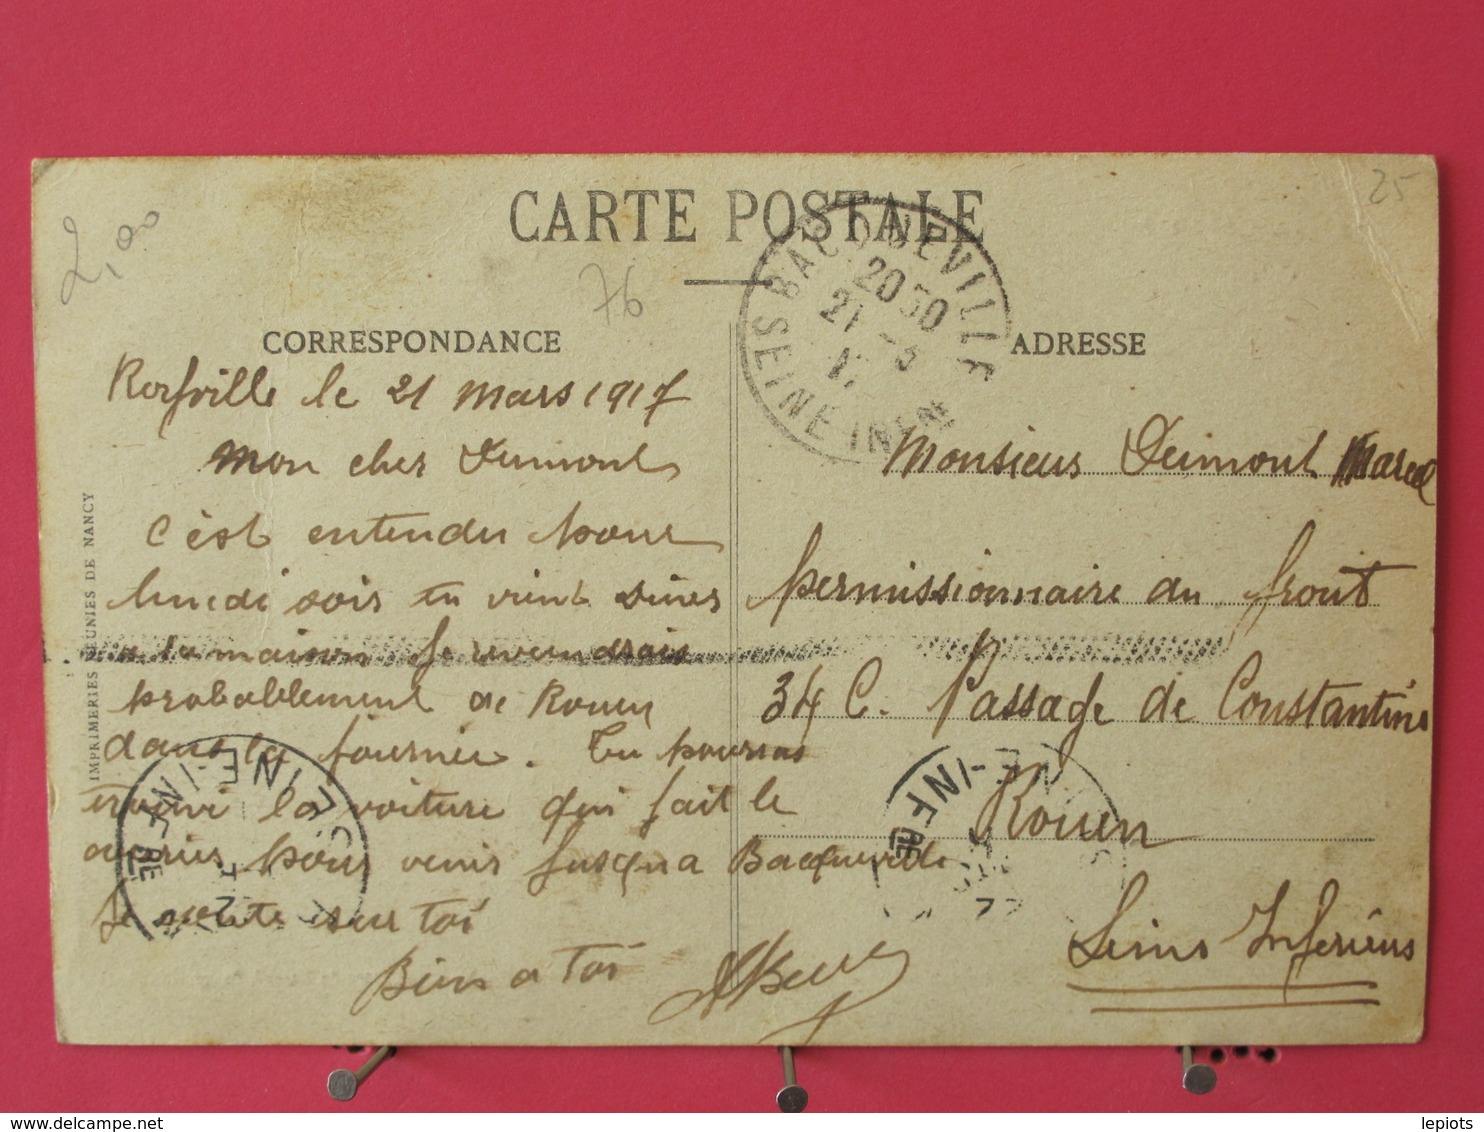 CARTE POSTALE
2,00
76
25
CORRESPONDANCE
ADRESSE
BACQUEVILLE
SEINE INFRE
20 30
21 -3
17
le 21 mars 1917
mon cher Dumont
c'est entendu pour
lundi soir tu vient diner
a la maison Je reveindrais
probablement de Rouen
dans la journée. Tu pourras
la voiture qui fait le
pour venir jusqu a Bacquevile
Je compte sur toi
Bien a toi
Monsieur Dumont Marcel
permissionnaire du front
34 C. Passage de Constantine
Rouen
Seine Inferieure
INFRE
INFRE
IMPRIMERIES REUNIES DE NANCY
lepiots
delcampe.net